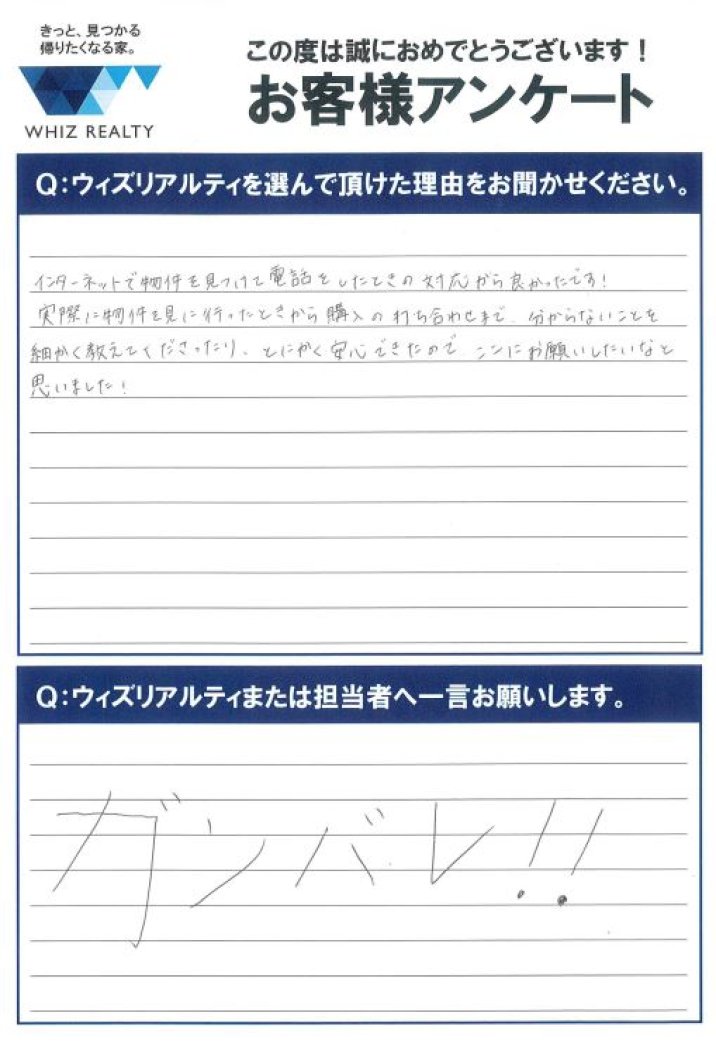 きっと、見つかる
帰りたくなる家。
WHIZ REALTY
この度は誠におめでとうございます！
お客様アンケート
Q：ウィズリアルティを選んで頂けた理由をお聞かせください。
インターネットで物件を見つけて電話をしたときの対応から良かったです！
実際に物件を見に行ったときから購入の打ち合わせまで、分からないことを
細かく教えてくださったり、とにかく安心できたので、ここにお願いしたいなと
思いました！
Q：ウィズリアルティまたは担当者へ一言お願いします。
ガンバレ!!